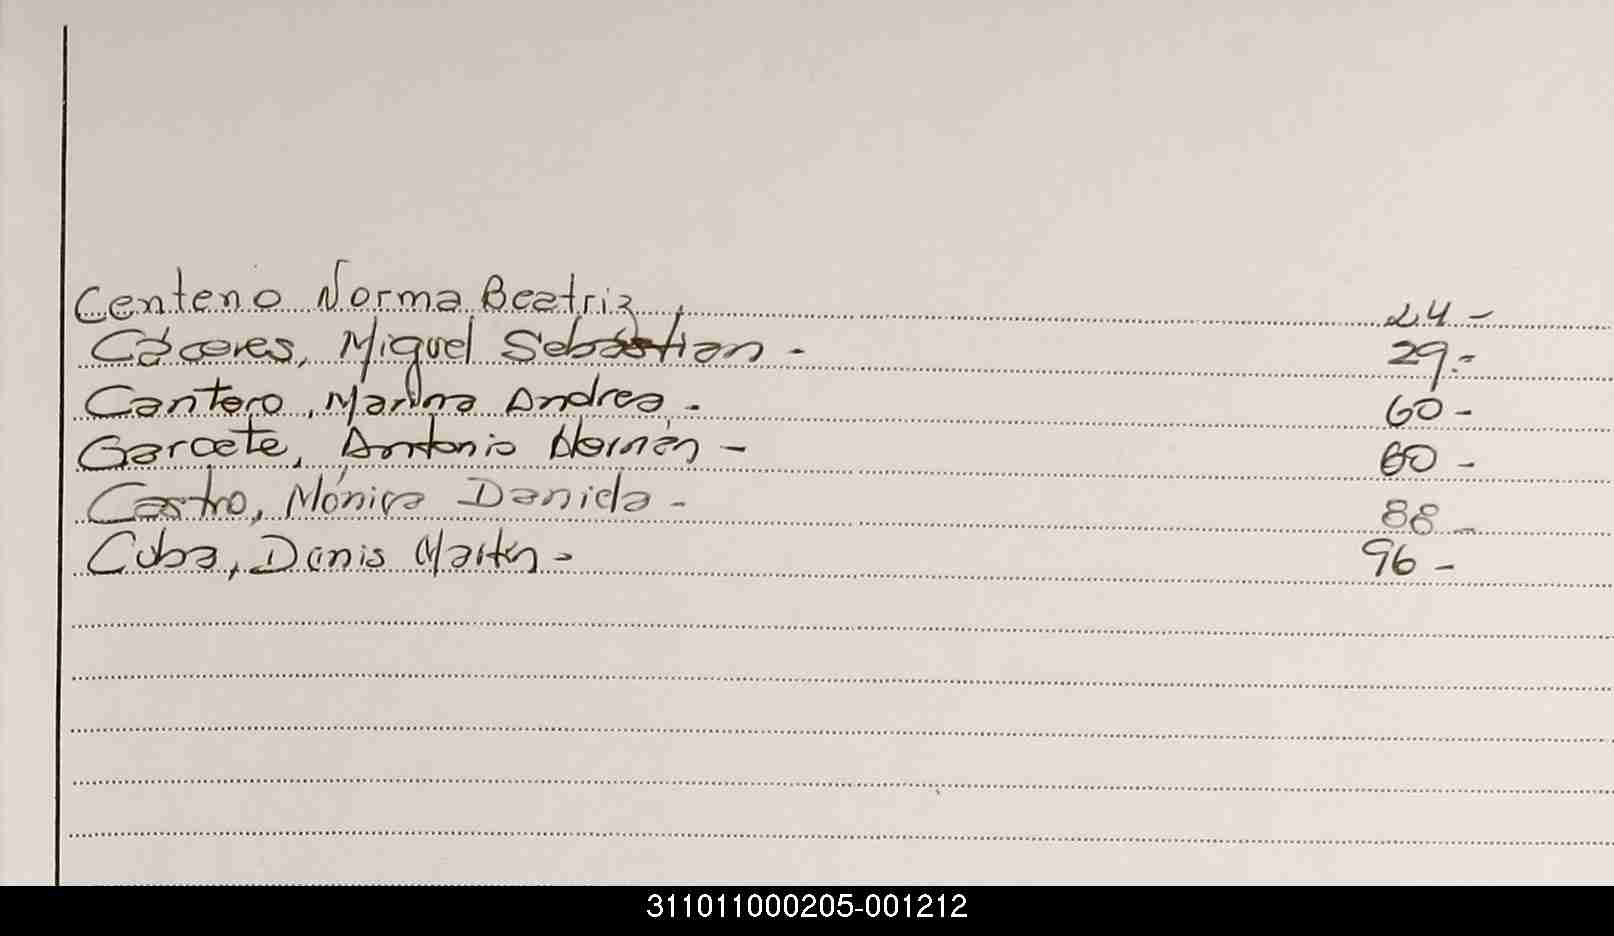 Centeno Norma Beatriz. 24-
Cáceres, Miguel Sebastian - 29.-
Cantero, Marina Andrea. 60-
Garcete, Antonio Hernán - 60-
Castro, Mónica Daniela - 88-
Cuba, Denis Martin - 96-
311011000205-001212